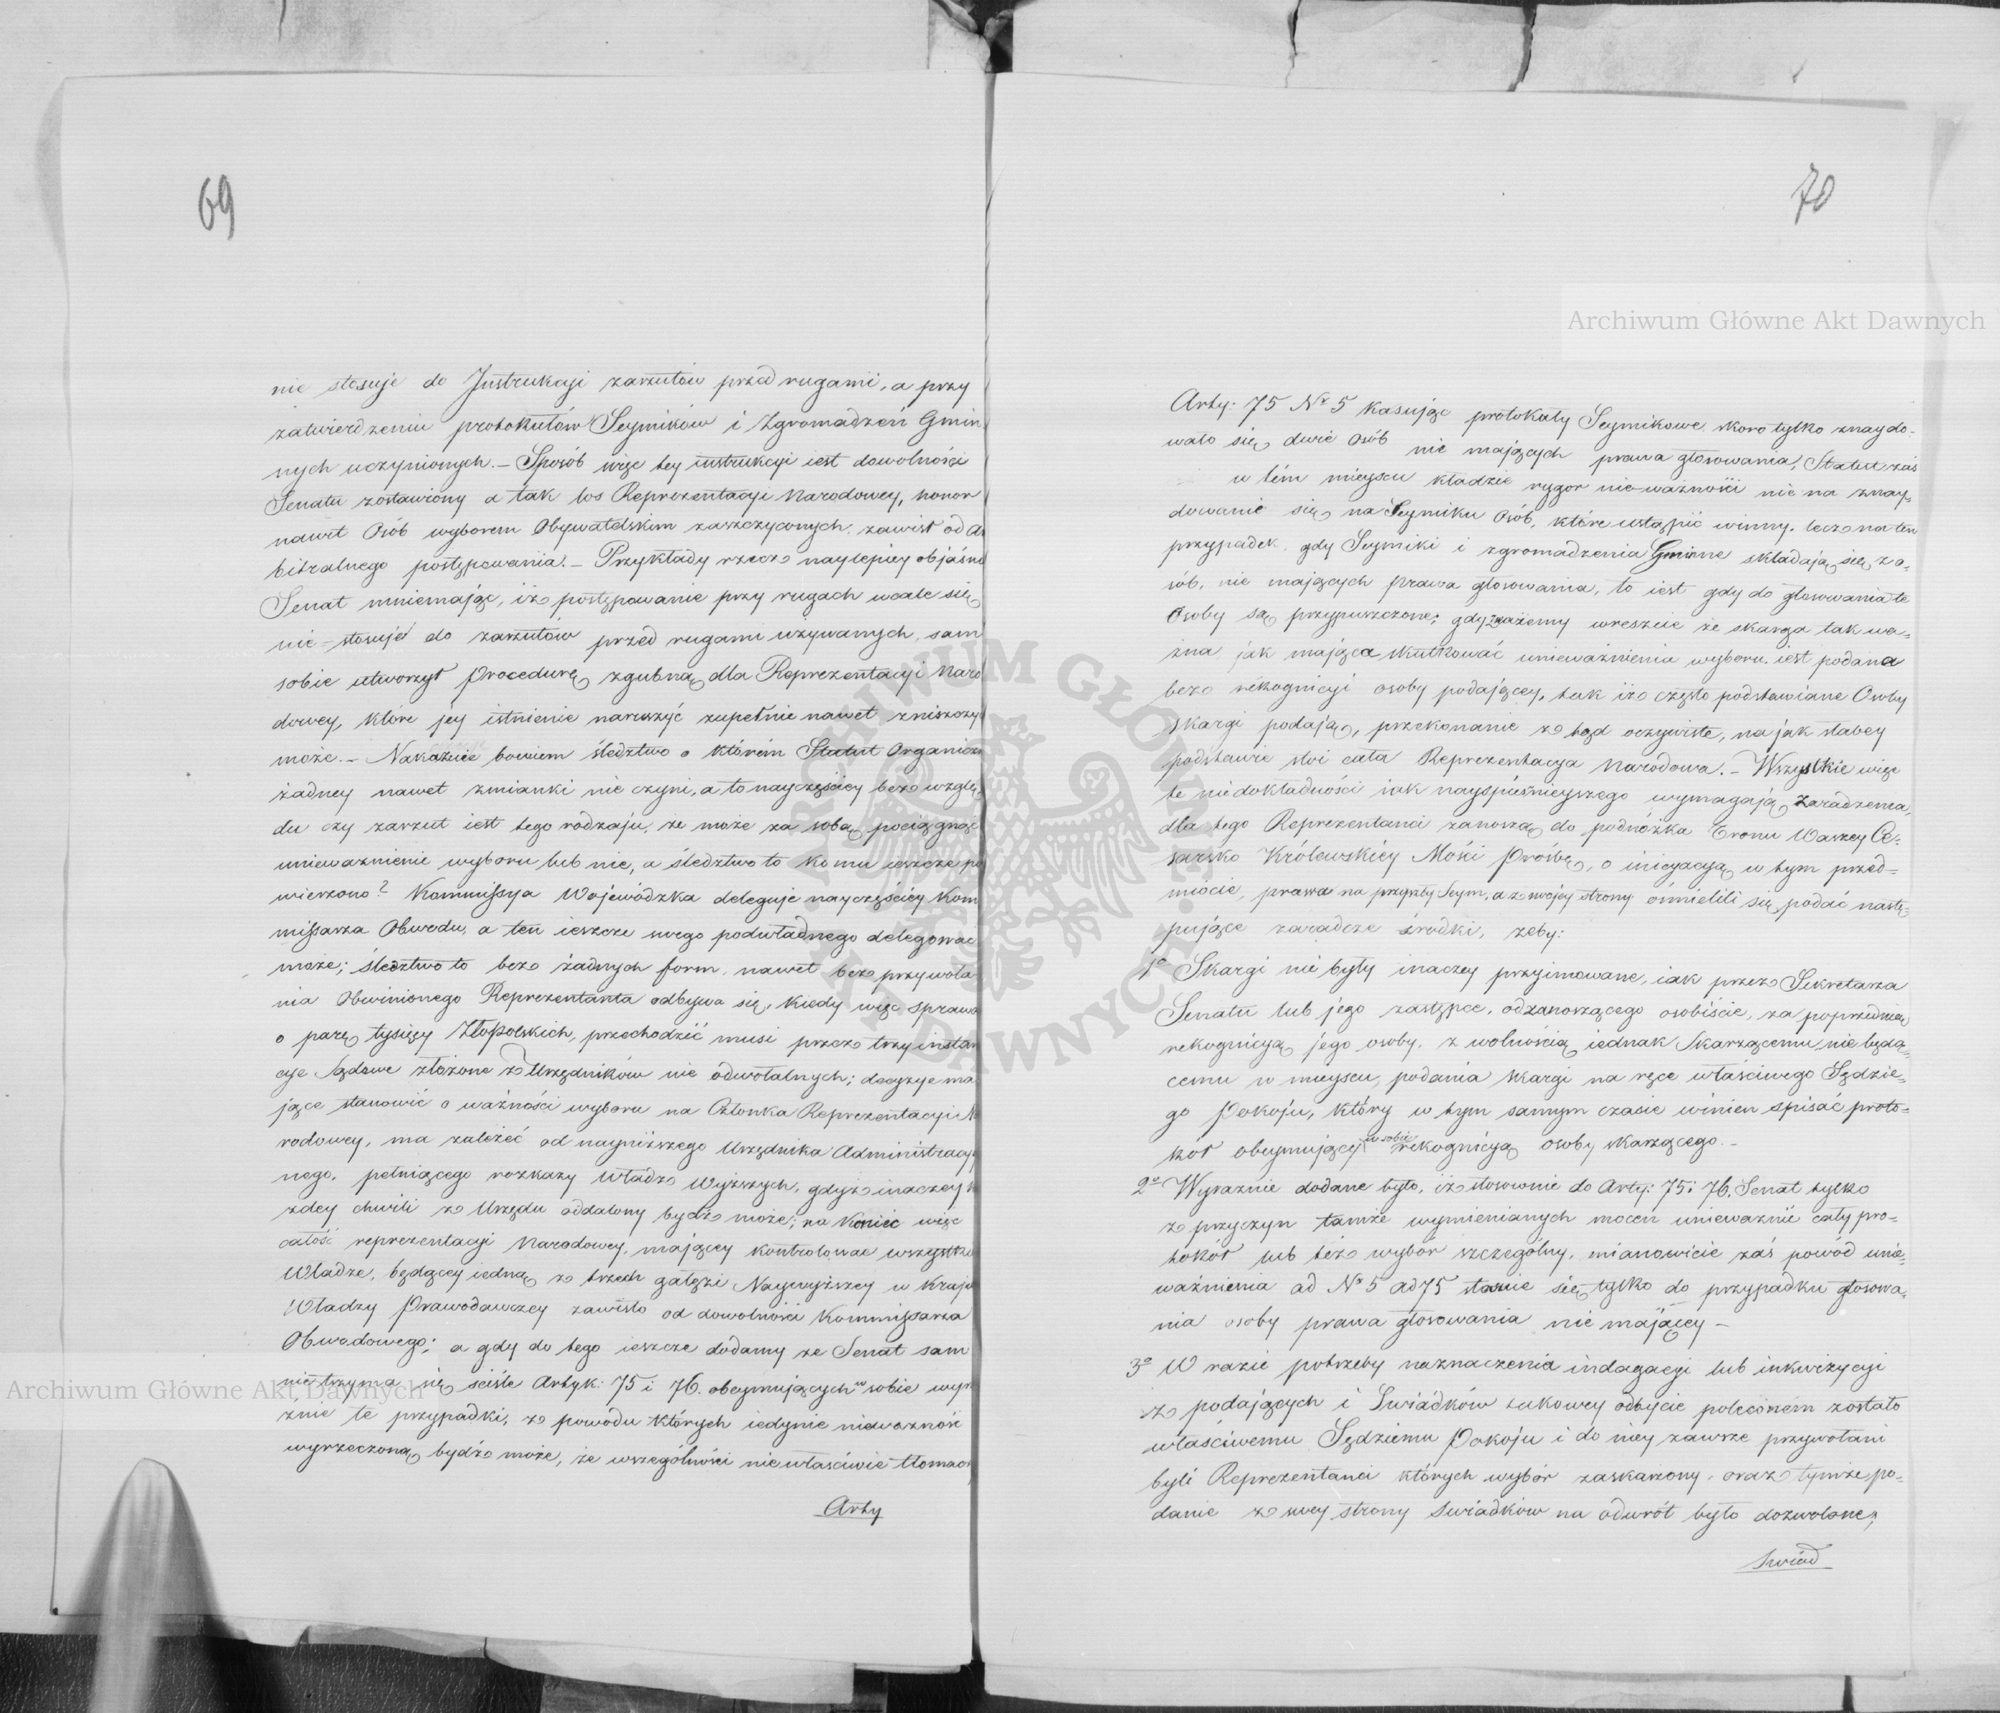 69
nie stosuje do Instrukcji zarzutów przed rugami, a przy
zatwierdzeniu protokułów Seymików i Zgromadzeń Gmin
nych uczynionych. – Sposób więc tey instrukcyi iest dowolności
Senatu zostawiony a tak los Reprezentacyi Narodowey, honor
nawet Osób wyborem Obywatelskim zaszczyconych, zawisł od Ar
bitralnego postępowania. – Przykłady rzecz naylepiey objaśnią
Senat mniemając, iż postępowanie przy rugach wcale się
nie stosuje do zarzutów przed rugami używanych, sam
sobie utworzył Procedurę zgubną dla Reprezentacyi Naro
dowey, które jey istnienie naruszyć zupełnie nawet zniszczyć
może. – Nakazuie bowiem śledztwo o którém Statut Organiczny
żadney nawet zmianki nie czyni, a to nayczęściey bez wzglę
du czy zarzut iest tego rodzaju, że może za sobą pociągnąć
unieważnienie wyboru lub nie, a śledztwo to komu ieszcze po
wierzono? Kommissya Wojewódzka deleguje nayczęściey Kom
missarza Obwodu, a ten ieszcze swego podwładnego delegować
może; śledztwo to bez żadnych form, nawet bez przywoła
nia Obwinionego Reprezentanta odbywa się, kiedy więc sprawa
o parę tysięcy Złopolskich, przechodzić musi przez trzy instan
cye Sądowe złożone z Urzędników nie odwołalnych; decyzye ma
jące stanowić o ważności wyboru na Członka Reprezentacyi Na
rodowey, ma zależeć od nayniższego Urzędnika Administracyi
nego, pełniącego rozkazy Władz Wyższych, gdyż inaczey k
zdey chwili z Urzędu oddalony bydź może; na Koniec więc
całość reprezentacyi Narodowey, mającey kontrolować wszystkie
Władze, będącey iedną z trzech gałęzi Naywyższey w Kraju
Władzy Prawodawczey zawisło od dowolności Kommissarza
Obwodowego; a gdy do tego ieszcze dodamy że Senat sam
nie trzyma się ściśle Artyk: 75 i 76. obeymujących w sobie wyra
źnie te przypadki, z powodu których iedynie nieważność
wyrzeczoną bydź może, że wszególności niewłaściwie tłomaczy
Arty
70
Arty: 75 Nr 5 kasując protokuły Seymikowe skoro tylko znaydo-
wało się dwie Osób nie mających prawa głosowania, Statut zaś
w tém mieyscu kładzie rygor nieważności nie na znay-
dowanie się na Seymiku Osób, które ustąpić winny, lecz na ten
przypadek, gdy Seymiki i zgromadzenia Gminne składają się z o-
sób, nie mających prawa głosowania, to iest gdy do głosowania te
Osoby są przypuszczone; gdy zważemy wreszcie że skarga tak wa-
żna jak mająca skutkować unieważnienia wyboru, iest podana
bez rekognicyi osoby podającey, tak iż często podstawiane Osoby
skargi podają, przekonanie ztąd oczywiste, na jak słabey
podstawie stoi cała Reprezentacya Narodowa. – Wszystkie więc
te niedokładności iak nayspieszniejszego wymagają zaradzenia,
dla tego Reprezentanci zanoszą do podnóżka Tronu Waszey Ce-
sarsko Królewskiéy Mości Prośbę, o inicyacyą w tym przed-
miocie, prawa na przyszły Seym, a z swojey strony ośmielili się podać nastę-
pujące zaradcze środki, żeby:
1o Skargi nie były inaczey przyimowane, iak przez Sekretarza
Senatu lub jego zastępce, od zanoszącego osobiście, za poprzednią
rekognicyą jego osoby, z wolnością iednak Skarzącemu nie będą-
cemu w mieyscu, podania skargi na ręce właściwego Sędzie-
go Pokoju, który w tym samym czasie winien spisać proto-
kół obeymujący w sobie rekognicyą osoby skarzącego. –
2o Wyraznie dodane było, iż stosownie do Arty: 75 i 76. Senat tylko
z przyczyn tamże wymienianych mocen unieważnić cały pro-
tokół lub też wybor szczególny, mianowicie zaś powód unie-
ważnienia ad Nr 5 ad 75 stosuie się tylko do przypadku głosowa-
nia osoby prawa głosowania nie mającey –
3o W razie potrzeby naznaczenia indagacyi lub inkwizycyi
z podających i Swiádków takowey odbycie poleconém zostało
właściwemu Sędziemu Pokoju i do niey zawsze przywołani
byli Reprezentanci których wybór zaskarżony, oraz tymże po-
danie z swey strony Swiadków na odwrót było dozwolone;
Swiád
Archiwum Główne Akt Dawnych
Archiwum Główne Akt Dawnych
ARCHIWUM GŁÓWNE AKT DAWNYCH